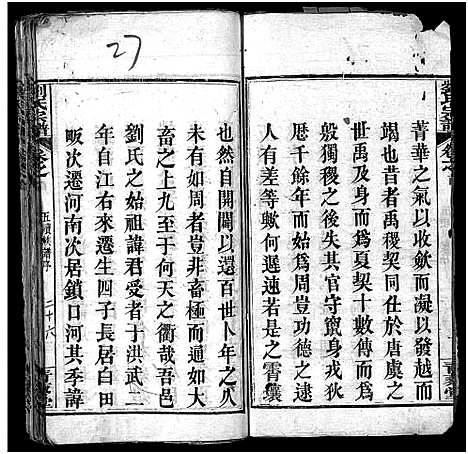 27
菁華之氣以收歛而凝以發越而
竭也昔禹稷契同仕於唐虞之
世禹及身而爲夏契十四世而爲
殷獨稷之後失其官守竄身戎狄
歷千餘年而始以周功德之逮
人有差等歟何遲速若是之霄壤
也然自開闢以還百世卜年之久
未有如周者豈非畜極而通如大
畜之上九至于何天之衢哉吾邑
劉氏之始祖諱君受者于洪武二
年自江右來遷生四子長居白田
畈次遷河南次居鎖口河其季諱
劉氏宗譜
卷之
二十六